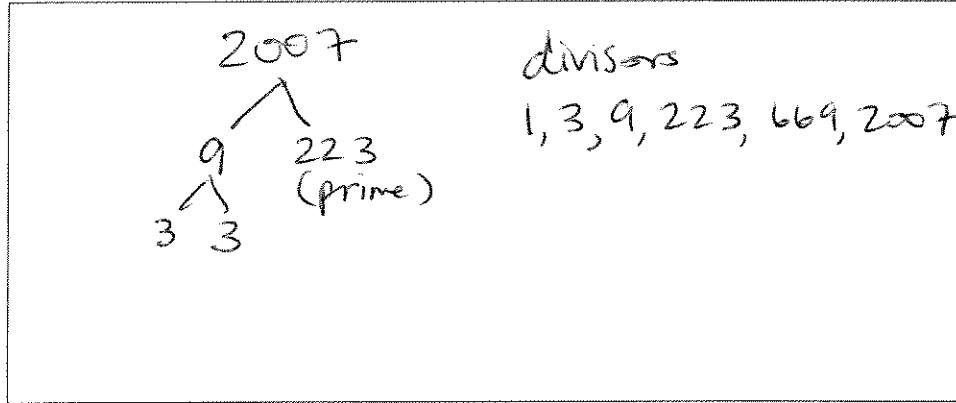 2007
9 223
(prime)
3 3
divisors
1, 3, 9, 223, 669, 2007